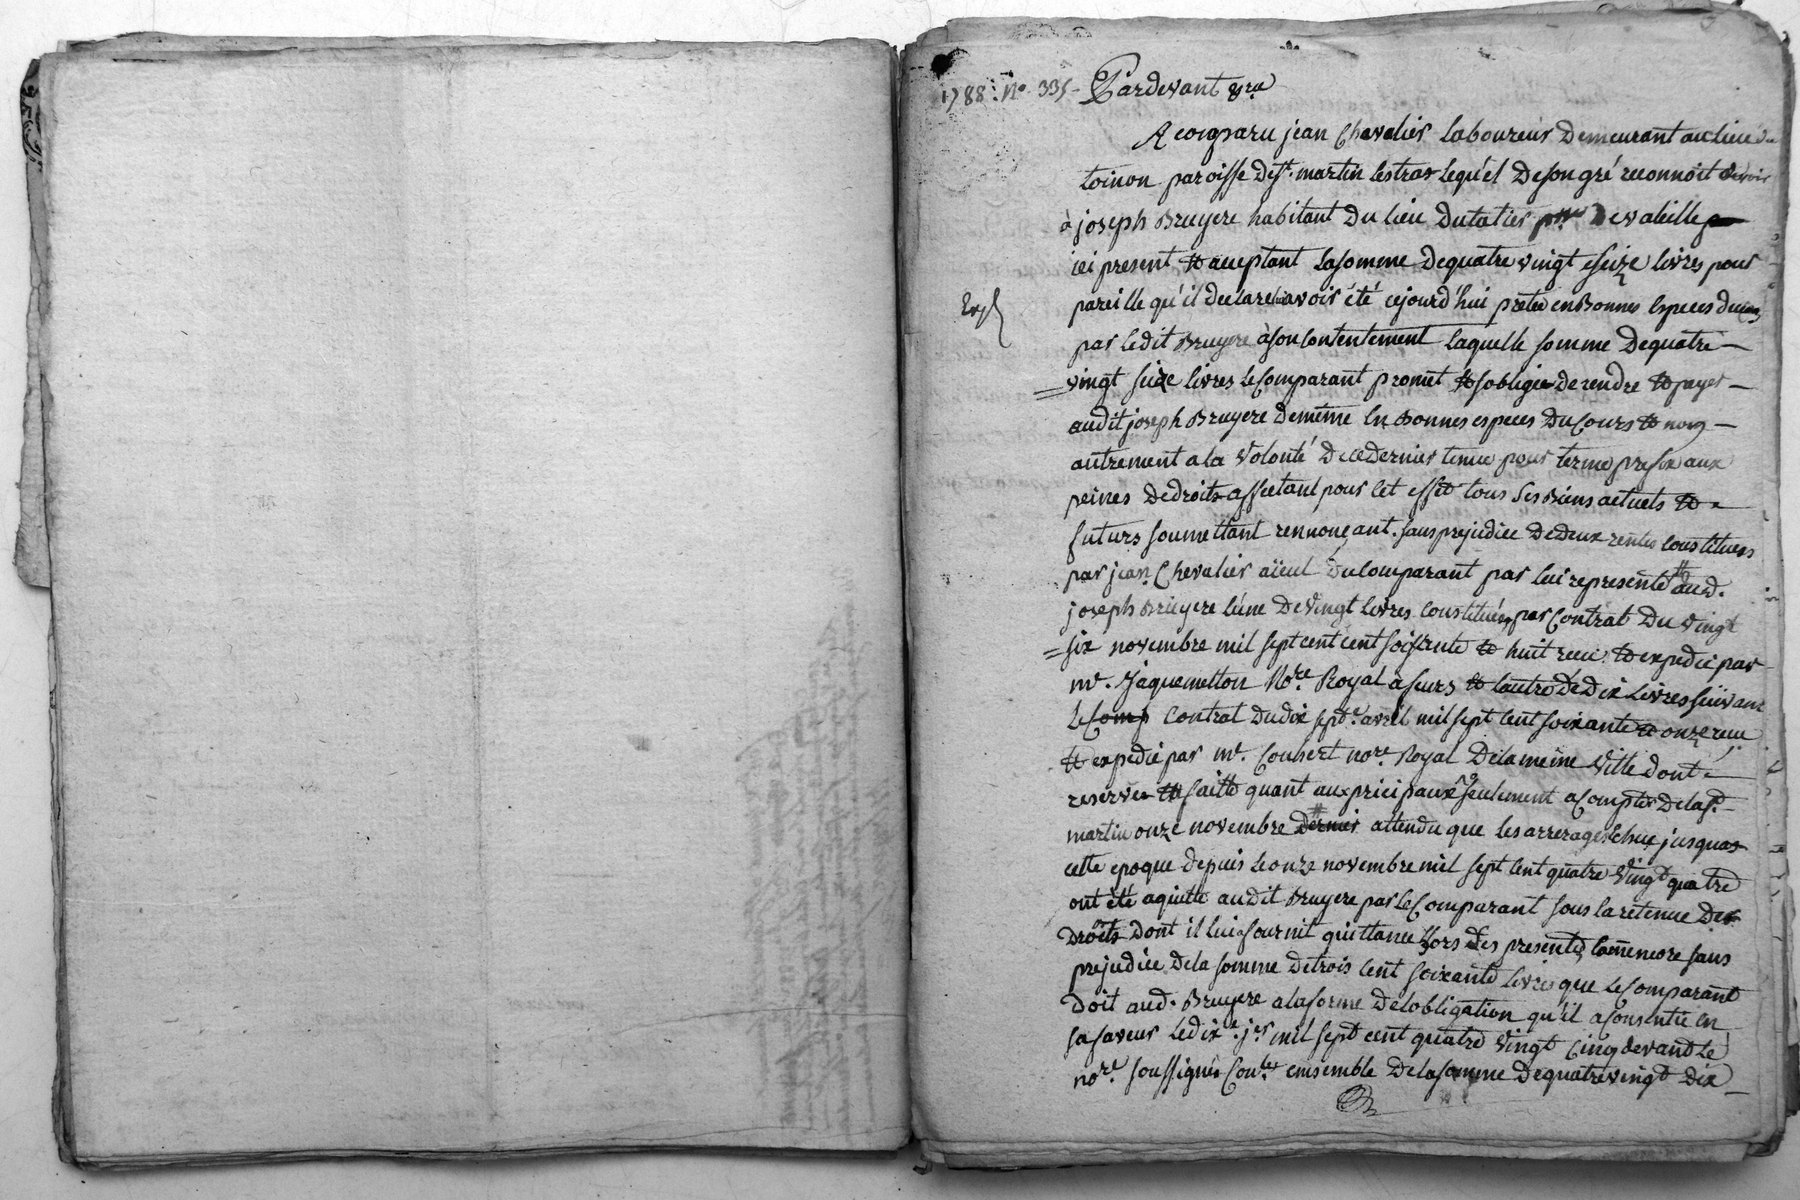 1788. No. 335 - Pardevant &ra
A comparu jean Chevalier laboureur Demeurant au lieu du
toinon paroisse de st. martin lestras lequel de son gré reconnoit devoir
à joseph Bruyere habitant Du lieu Dutatier De valeille
ici present et acceptant la somme De quatre vingt seize livres pour
pareille qu'il declare avoir été cejourd'hui pretée en Bonnes especes du cours
par ledit Bruyere à son contentement laquelle somme De quatre
vingt seize livres le Comparant promet et soblige de rendre et payer
audit joseph Bruyere de même En Bonnes especes Du Cours et non
autrement a la Volonté De ce Dernier tenue pour terme prefix aux
peines de droits affectant pour cet effet tous ses Biens actuels et
futurs soumettant rennonçant. sans prejudice De Deux rentes constituées
par jean Chevalier aïeul du comparant par lui representé aud.
joseph Bruyere l'une De Vingt livres constituée par Contrat Du vingt
six novembre mil sept cent cent soixante et huit recu et expedié par
me. Jaquemetton Nore. Royal à feurs et l'autre De Dix livres suivant
le Comp Contrat du dix sept avril mil sept cent soixante et onze recu
et expedié par me. Coubert nore. Royal De la même Ville dont
reserve est faitte quant aux pricipaux seulement a compter de la st.
martin onze novembre Dernier attendu que les arrerages Echus jusqua
cette epoque depuis le onze novembre mil sept cent quatre Vingt quatre
ont été aquitté audit Bruyere par le Comparant sous la retenue Des
Droits dont il lui a fournit quittance hors des presentes comme encore sans
prejudice De la somme De trois cent soixante livres que le Comparant
Doit aud. Bruyere a la forme De l'obligation qu'il a consentie en
sa faveur le dix jer mil sept cent quatre Vingt Cinq devant le
nore. soussigné Conler. ensemble De la somme De quatre vingt Dix